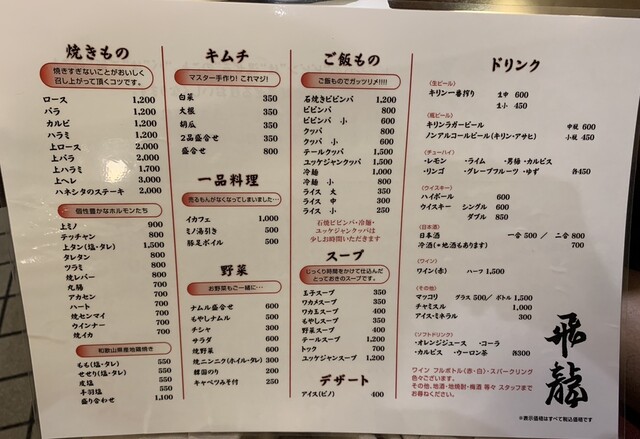 焼きもの
焼きすぎないことがおいしく
召し上がって頂くコツです。
ロース 1,200
バラ 1,200
カルビ 1,200
ハラミ 1,200
上ロース 2,000
上バラ 2,000
上ハラミ 1,700
上ヘレ 3,000
ハネシタのステーキ 2,000
個性豊かなホルモンたち
上ミノ 900
テッチャン 800
上タン(塩・タレ) 1,500
タレタン 800
ツラミ 800
焼レバー 800
丸腸 700
アカセン 700
ハート 700
焼センマイ 700
ウインナー 700
焼イカ 700
和歌山県産地鶏焼き
もも(塩・タレ) 550
せせり(塩・タレ) 550
皮塩 550
手羽塩 550
盛り合わせ 1,100
キムチ
マスター手作り! これマジ!
白菜 350
大根 350
胡瓜 350
2品盛合せ 350
盛合せ 800
一品料理
売るもんがなくなってしまいました…
イカフェ 1,000
ミノ湯引き 500
豚足ボイル 500
野菜
お野菜もご一緒に…
ナムル盛合せ 600
もやしナムル 500
チシャ 300
サラダ 600
焼野菜 600
焼ニンニク(ホイル・タレ) 300
韓国のり 200
キャベツみそ付 250
ご飯もの
ご飯ものでガッツリメ!!!!
石焼きビビンバ 1,200
ビビンバ 800
ビビンバ 小 600
クッパ 800
クッパ 小 600
テールクッパ 1,200
ユッケジャンクッパ 1,500
冷麺 1,000
冷麺 小 800
ライス 大 350
ライス 中 300
ライス 小 250
石焼ビビンバ・冷麺・
ユッケジャンクッパは
少しお時間いただきます
スープ
じっくり時間をかけて仕込んだ
とっておきのスープです。
玉子スープ 350
ワカメスープ 350
ワカ玉スープ 400
もやしスープ 350
野菜スープ 400
テールスープ 1,200
トック 700
ユッケジャンスープ 1,200
デザート
アイス(ピノ) 400
ドリンク
〈生ビール〉
キリン一番搾り 生中 600
生小 450
〈瓶ビール〉
キリンラガービール 中瓶 600
ノンアルコールビール(キリン・アサヒ) 小瓶 450
〈チューハイ〉
・レモン ・ライム ・男梅・カルピス
・リンゴ ・グレープフルーツ ・ゆず 各450
〈ウイスキー〉
ハイボール 600
ウイスキー シングル 600
ダブル 850
〈日本酒〉
日本酒 一合 500 / 二合 800
冷酒(=地酒もあります) 700
〈ワイン〉
ワイン(赤) ハーフ 1,500
〈その他〉
マッコリ グラス 500/ ボトル 1,500
チャミスル 1,000
アイス・ミネラル 300
〈ソフトドリンク〉
・オレンジジュース ・コーラ
・カルピス ・ウーロン茶 各300
ワイン フルボトル〈赤・白〉・スパークリング
色々ございます。
その他、地酒・地焼酎・梅酒 等々 スタッフまで
お尋ねください。
飛龍
※表示価格はすべて税込価格です